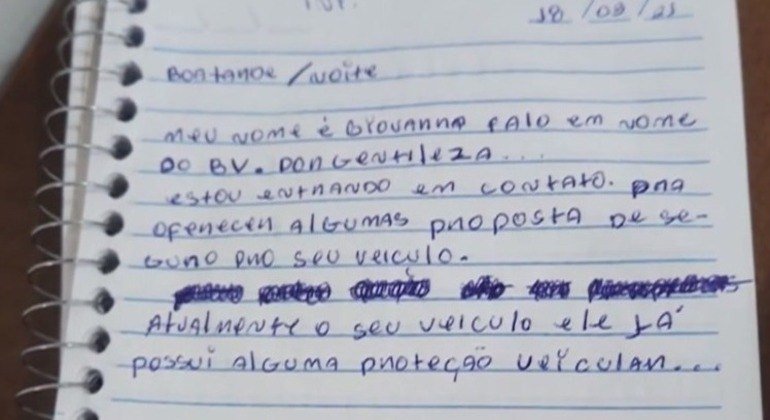 18/08/21
BOATARDE/NOITE
MEU NOME é GIOVANNA FALO em NOME
DO BV. PORGENTILEZA...
ESTOU ENTRANDO em CONTATO. PRA
OFERECER ALGUMAS PROPOSTA DE SE-
GURO PRO SEU VEICULO.
ATUALMENTE O SEU VEICULO ELE JÁ
POSSUI ALGUMA PROTEÇÃO VEICULAR...